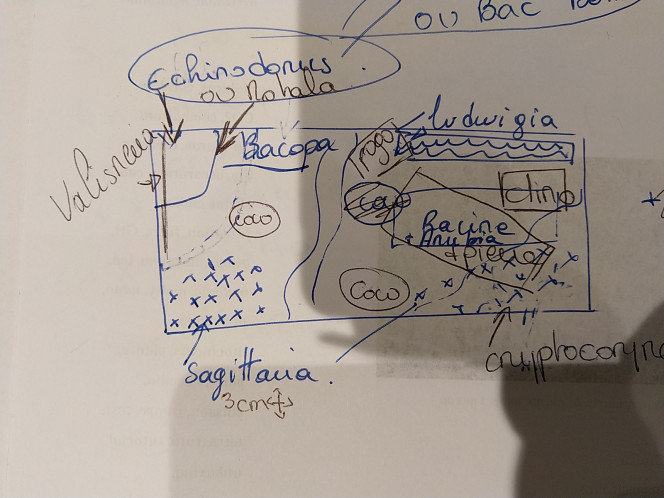 ou Bac
Echinodorus
ou Rotala
ludwigia
Valisneria
Bacopa
coco
Racine
+ Anubia
+ pierre
Coco
Sagittaria.
3cm
cryptocoryne